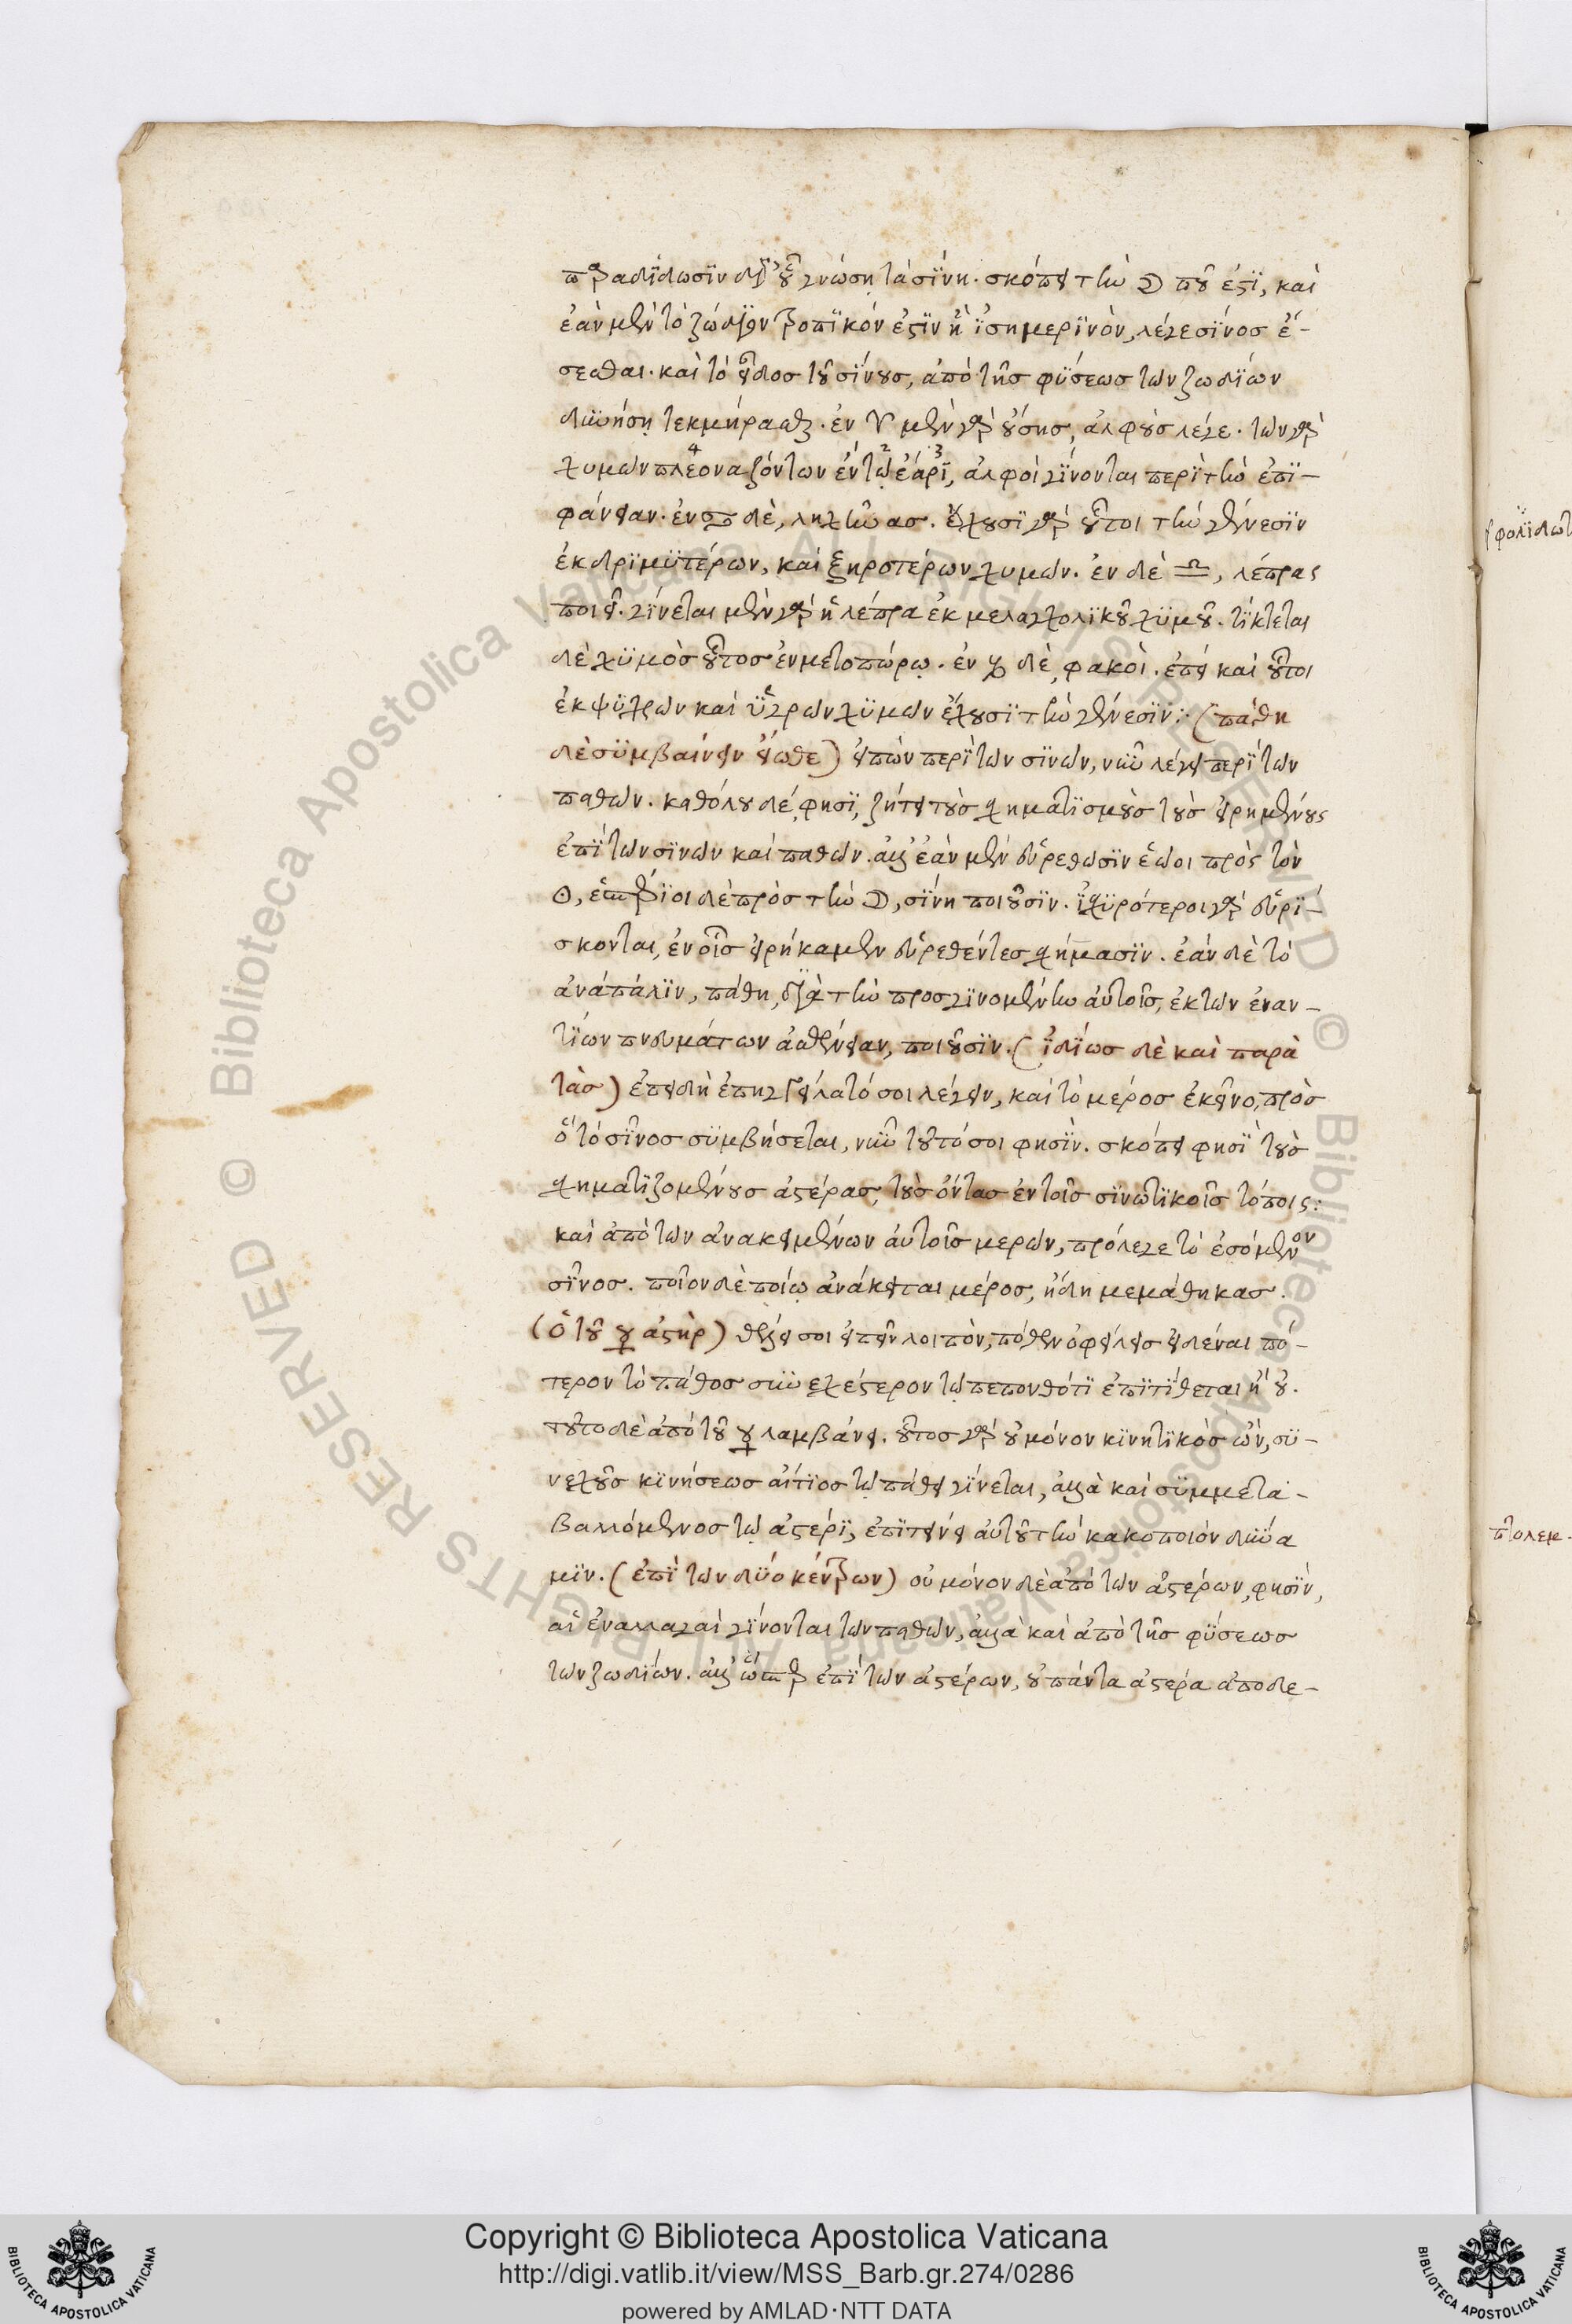 παραδίδωσιν δι' οὗ γνώσῃ τὰ σίνη. σκόπει τὴν ☽ ποῦ ἐστί, καὶ
ἐὰν μὲν τὸ ζώδιον τροπικόν ἐστιν ἢ ἰσημερινὸν, λέγε σίνος ἔ-
σεσθαι. καὶ τὸ εἶδος τοῦ σίνους, ἀπὸ τῆς φύσεως τῶν ζωδίων
δυνήσῃ τεκμήρασθαι. ἐν ♈ μὲν γὰρ οὔσης, ἀλφοὺς λέγε. τῶν γὰρ
χυμῶν πλεοναζόντων ἐν τῷ ἔαρι, ἀλφοὶ γίνονται περὶ τὴν ἐπι-
φάνειαν. ἐν ♋ δὲ, λειχῆνας. ἔχουσι γὰρ οὗτοι τὴν γένεσιν
ἐκ δριμυτέρων, καὶ ξηροτέρων χυμῶν. ἐν δὲ ♎, λέπρας
ποιεῖ. γίνεται μὲν γὰρ ἡ λέπρα ἐκ μελαγχολικοῦ χυμοῦ. τίκτεται
δὲ χυμὸς οὗτος ἐν μετοπώρῳ. ἐν ♑ δὲ, φακοὶ. ἐπεὶ καὶ οὗτοι
ἐκ ψυχρῶν καὶ ὑγρῶν χυμῶν ἔχουσι τὴν γένεσιν: (πάθη
δὲ συμβαίνειν εἴωθε) εἰπὼν περὶ τῶν σινῶν, νῦν λέγει περὶ τῶν
παθῶν. καθόλου δέ, φησι, ζήτει τοὺς σχηματισμοὺς τοὺς εἰρημένους
ἐπὶ τῶν σινῶν καὶ παθῶν. ἀλλ' ἐὰν μὲν εὑρεθῶσιν ἑῷοι πρὸς τὸν
☉, ἑσπέριοι δὲ πρὸς τὴν ☽, σίνη ποιοῦσιν. ἰσχυρότεροι γὰρ εὑρί-
σκονται, ἐν οἷς εἰρήκαμεν εὑρεθέντες σχήμασιν. ἐὰν δὲ τὸ
ἀνάπαλιν, πάθη, διὰ τὴν προσγινομένην αὐτοῖς, ἐκ τῶν ἐναν-
τίων πνευμάτων ἀσθένειαν, ποιοῦσιν. (ἰδίως δὲ καὶ παρὰ
τὰς) ἐπειδὴ ἐπηγγείλατό σοι λέγειν, καὶ τὸ μέρος ἐκεῖνο, πρὸς
ὃ τὸ σῖνος συμβήσεται, νῦν τοῦτό σοι φησὶν. σκόπει φησὶ τοὺς
σχηματιζομένους ἀστέρας, τοὺς ὄντας ἐν τοῖς σινωτικοῖς τόποις:
καὶ ἀπὸ τῶν ἀνακειμένων αὐτοῖς μερῶν, πρόλεγε τὸ ἐσόμενον
σῖνος. ποῖον δὲ ποίῳ ἀνάκειται μέρος, ἤδη μεμάθηκας.
(ὁ τοῦ ☿ ἀστὴρ) θέλει σοι εἰπεῖν λοιπὸν, πόθεν ὀφείλεις εἰδέναι πό-
τερον τὸ πάθος συνεχέστερον τῷ πεπονθότι ἐπιτίθεται ἢ οὔ.
τοῦτο δὲ ἀπὸ τοῦ ☿ λαμβάνει. οὗτος γὰρ οὐ μόνον κινητικὸς ὢν, συ-
νεχοῦς κινήσεως αἴτιος τῷ πάθει γίνεται, ἀλλὰ καὶ συμμετα-
βαλλόμενος τῷ ἀστέρι, ἐπιτείνει αὐτοῦ τὴν κακοποιὸν δύνα
μιν. (ἐπὶ τῶν δύο κέντρων) οὐ μόνον δὲ ἀπὸ τῶν ἀστέρων, φησὶν,
αἱ ἐναλλαγαὶ γίνονται τῶν παθῶν, ἀλλὰ καὶ ἀπὸ τῆς φύσεως
τῶν ζωδίων. ἀλλ' ὥσπερ ἐπὶ τῶν ἀστέρων, οὐ πάντα ἀστέρα ἀποδε-
πτολεμ.
Copyright © Biblioteca Apostolica Vaticana
http://digi.vatlib.it/view/MSS_Barb.gr.274/0286
powered by AMLAD·NTT DATA
BIBLIOTECA APOSTOLICA VATICANA
BIBLIOTECA APOSTOLICA VATICANA
Biblioteca Apostolica Vaticana ALL RIGHTS RESERVED ©
Biblioteca Apostolica Vaticana ALL RIGHTS RESERVED ©